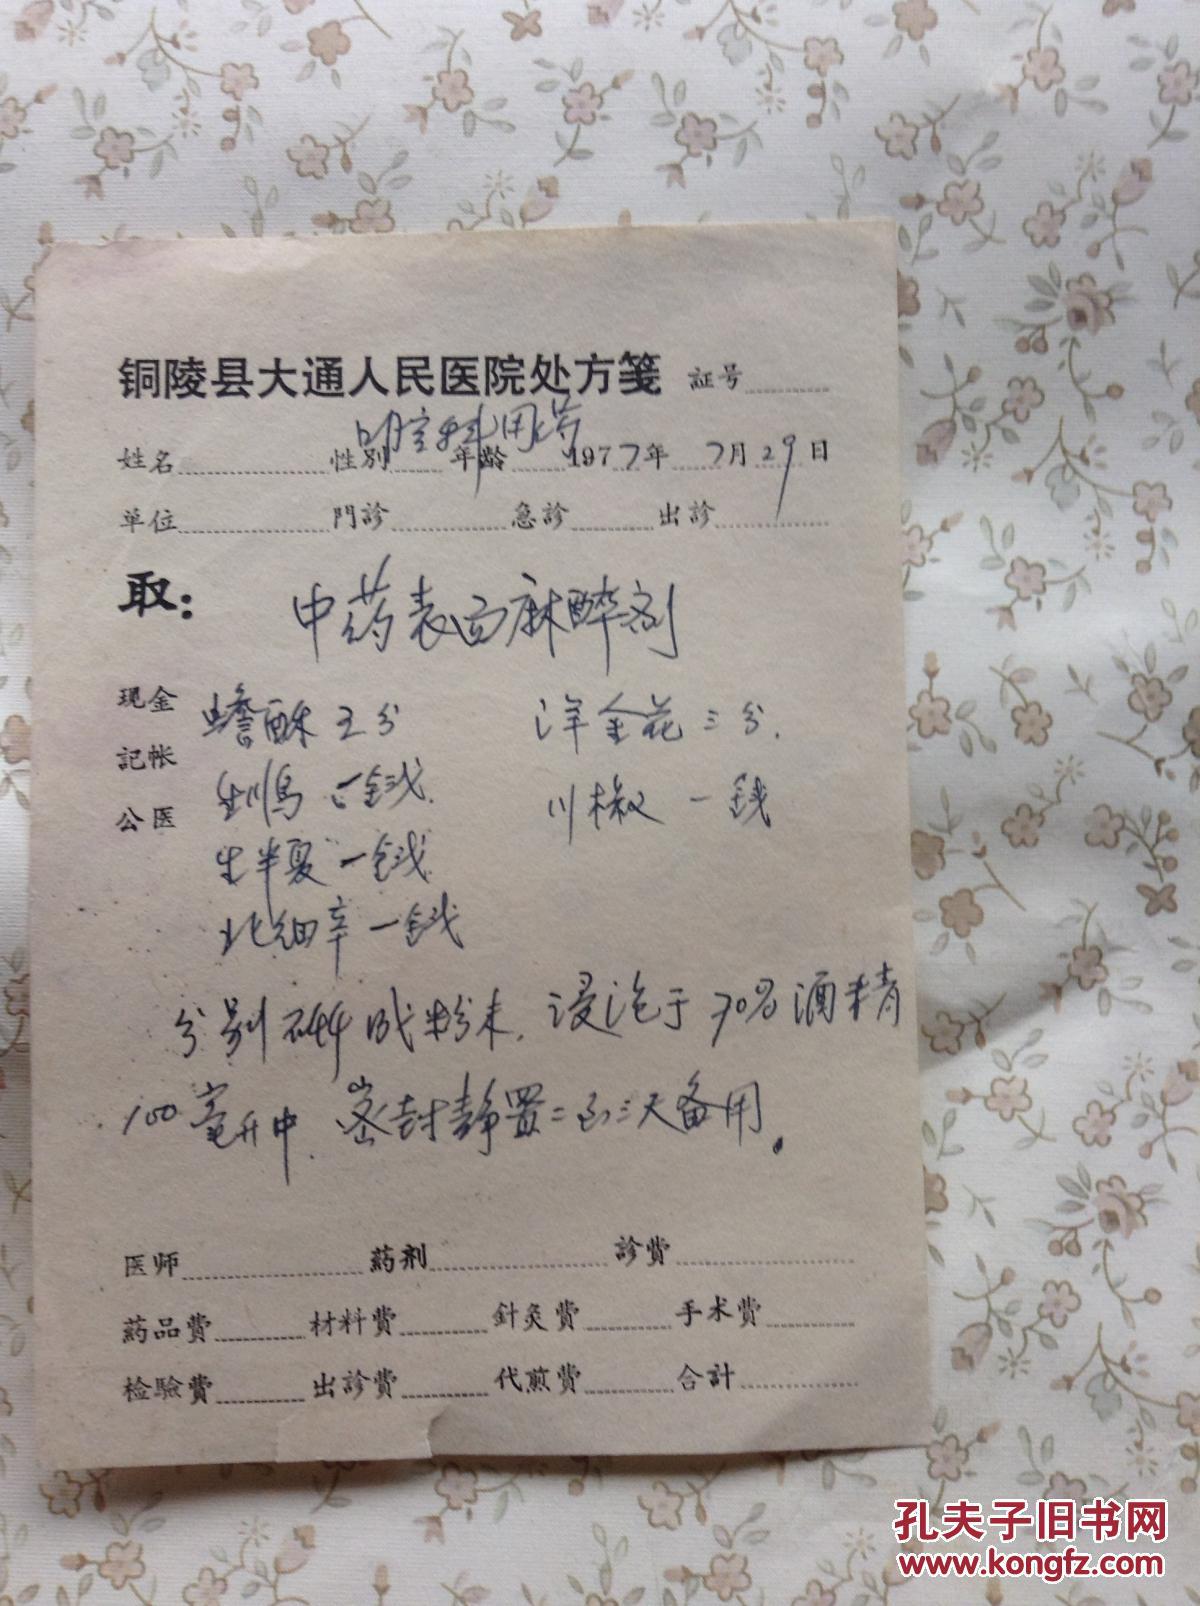 铜陵县大通人民医院处方笺 証号
口腔科用药
姓名 性别 年龄 1977年 7月29日
单位 門診 急診 出診
取: 中药表面麻醉剂
现金 蟾酥 五分 洋金花 三分.
記帐 生川乌 一钱. 川椒 一钱
公医
生半夏 一钱.
北细辛 一钱
分别研成粉末. 浸泡于70%酒精
100毫升中. 密封静置二至三天备用。
医师 葯剂 診費
葯品費 材料費 針灸費 手术費
检驗費 出診費 代煎費 合計
孔夫子旧书网
www.kongfz.com